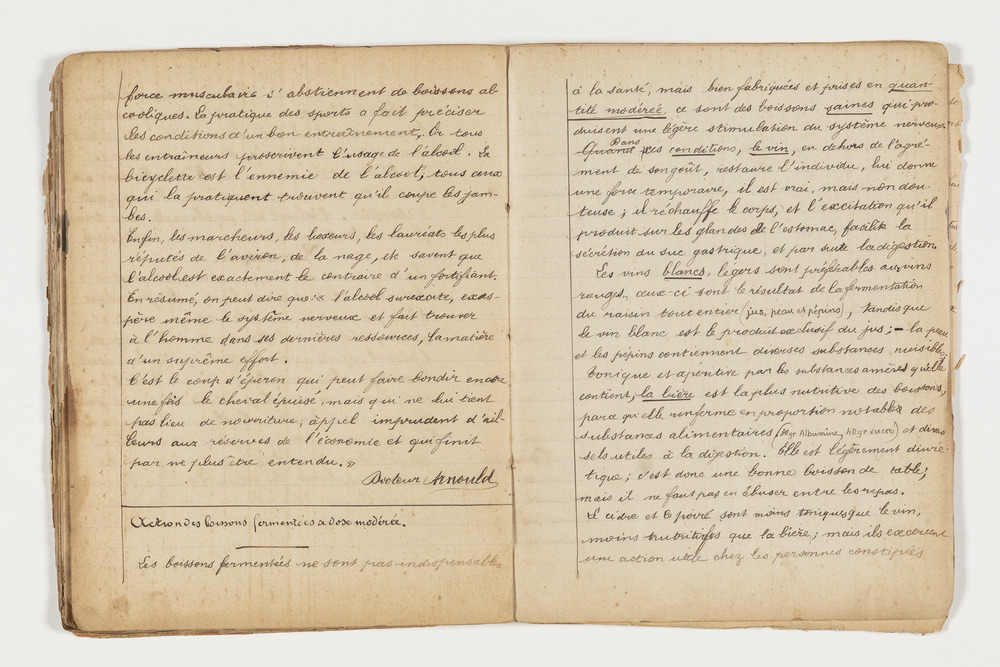 force musculaire s'abstiennent de boissons al
cooliques. La pratique des sports a fait préciser
les conditions d'un bon entraînement, Or tous
les entraîneurs proscrivent l'usage de l'alcool. La
bicyclette est l'ennemie de l'alcool, tous ceux
qui la pratiquent trouvent qu'il coupe les jam-
bes.
Enfin, les marcheurs, les boxeurs, les lauréats les plus
réputés de l'aviron, de la nage, etc savent que
l'alcool est exactement le contraire d'un fortifiant.
En résumé, on peut dire que: « l'alcool surexcite, exas-
père même le système nerveux et fait trouver
à l'homme dans ses dernières ressources, la matière
d'un suprême effort.
C'est le coup d'éperon qui peut faire bondir encore
une fois le cheval épuisé, mais qui ne lui tient
pas lieu de nourriture; appel imprudent d'ail-
leurs aux réserves de l'économie et qui finit
par ne plus être entendu. »
Docteur Arnould
Action des boissons fermentées à dose modérée.
Les boissons fermentées ne sont pas indispensables
à la santé, mais bien fabriquées et prises en quan-
tité modérée, ce sont des boissons saines qui pro-
duisent une légère stimulation du système nerveux.
Dans
Quand ces conditions, le vin, en dehors de l'agré-
ment de son goût, restaure l'individu, lui donne
une force temporaire, il est vrai, mais non dou-
teuse; il réchauffe le corps, et l'excitation qu'il
produit sur les glandes de l'estomac, facilite la
sécrétion du suc gastrique, et par suite la digestion.
Les vins blancs, légers sont préférables aux vins
rouges, ceux-ci sont le résultat de la fermentation
du raisin tout entier (jus, peau et pépins), tandis que
le vin blanc est le produit exclusif du jus; - la peau
et les pépins contiennent diverses substances nuisibles,
Tonique et apéritive par les substances amères qu'elle
contient, la bière est la plus nutritive des boissons,
parce qu'elle renferme en proportion notables des
substances alimentaires (80gr Albumine, 40gr sucre) et divers
sels utiles à la digestion. Elle est légèrement diuré-
tique; c'est donc une bonne boisson de table;
mais il ne faut pas en abuser entre les repas.
Le cidre et le poiré sont moins toniques que le vin,
moins nutritifs que la bière; mais ils exercent
une action utile chez les personnes constipées